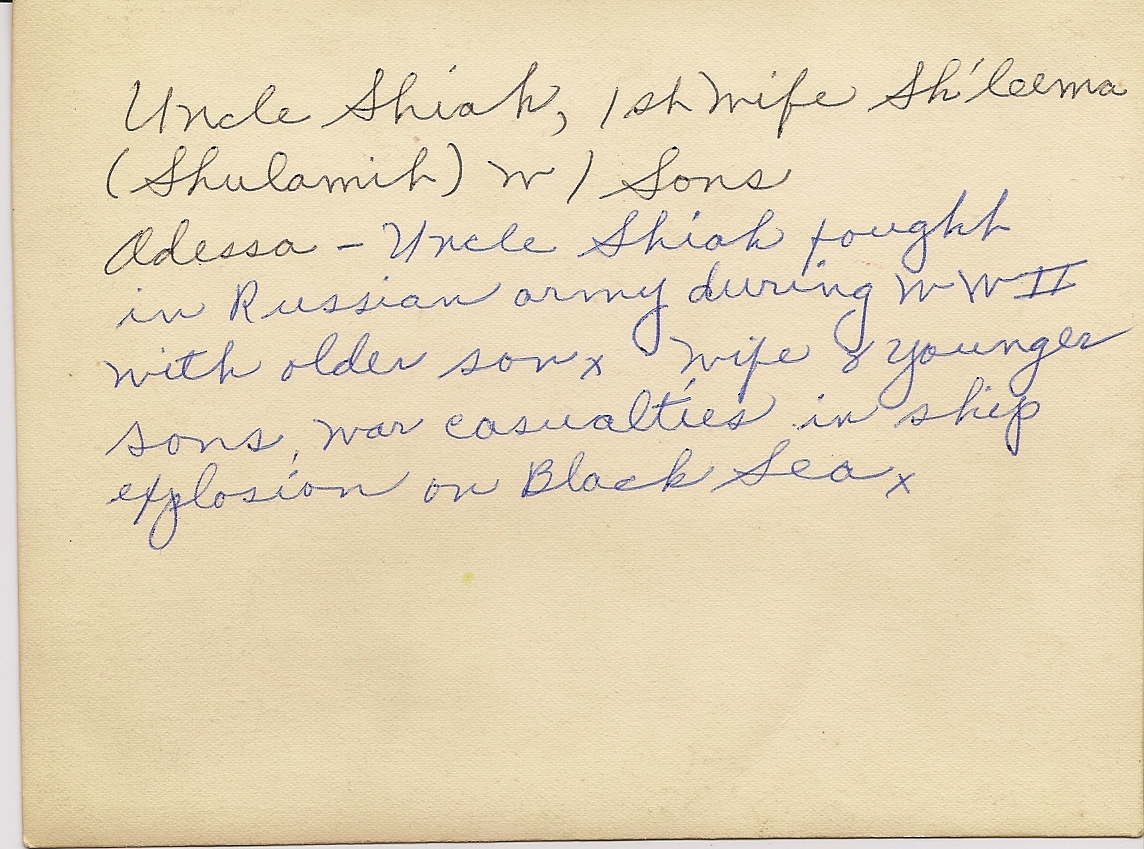 Uncle Shiah, 1st wife Sh'leema
(Shulamith) w/ Sons
Odessa - Uncle Shiah fought
in Russian army during WWII
with older sonx Wife & younger
sons, war casualties in ship
explosion on Black Seax